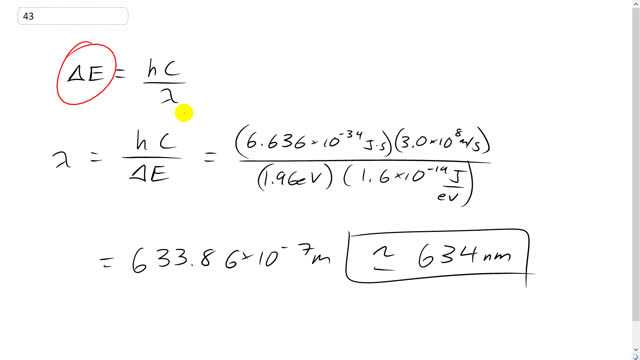 43
ΔE = hC/λ
λ = hC/ΔE = (6.636×10⁻³⁴ J·s)(3.0×10⁸ m/s)/(1.96eV)(1.6×10⁻¹⁹ J/eV)
= 633.86×10⁻⁷ m ≃ 634 nm